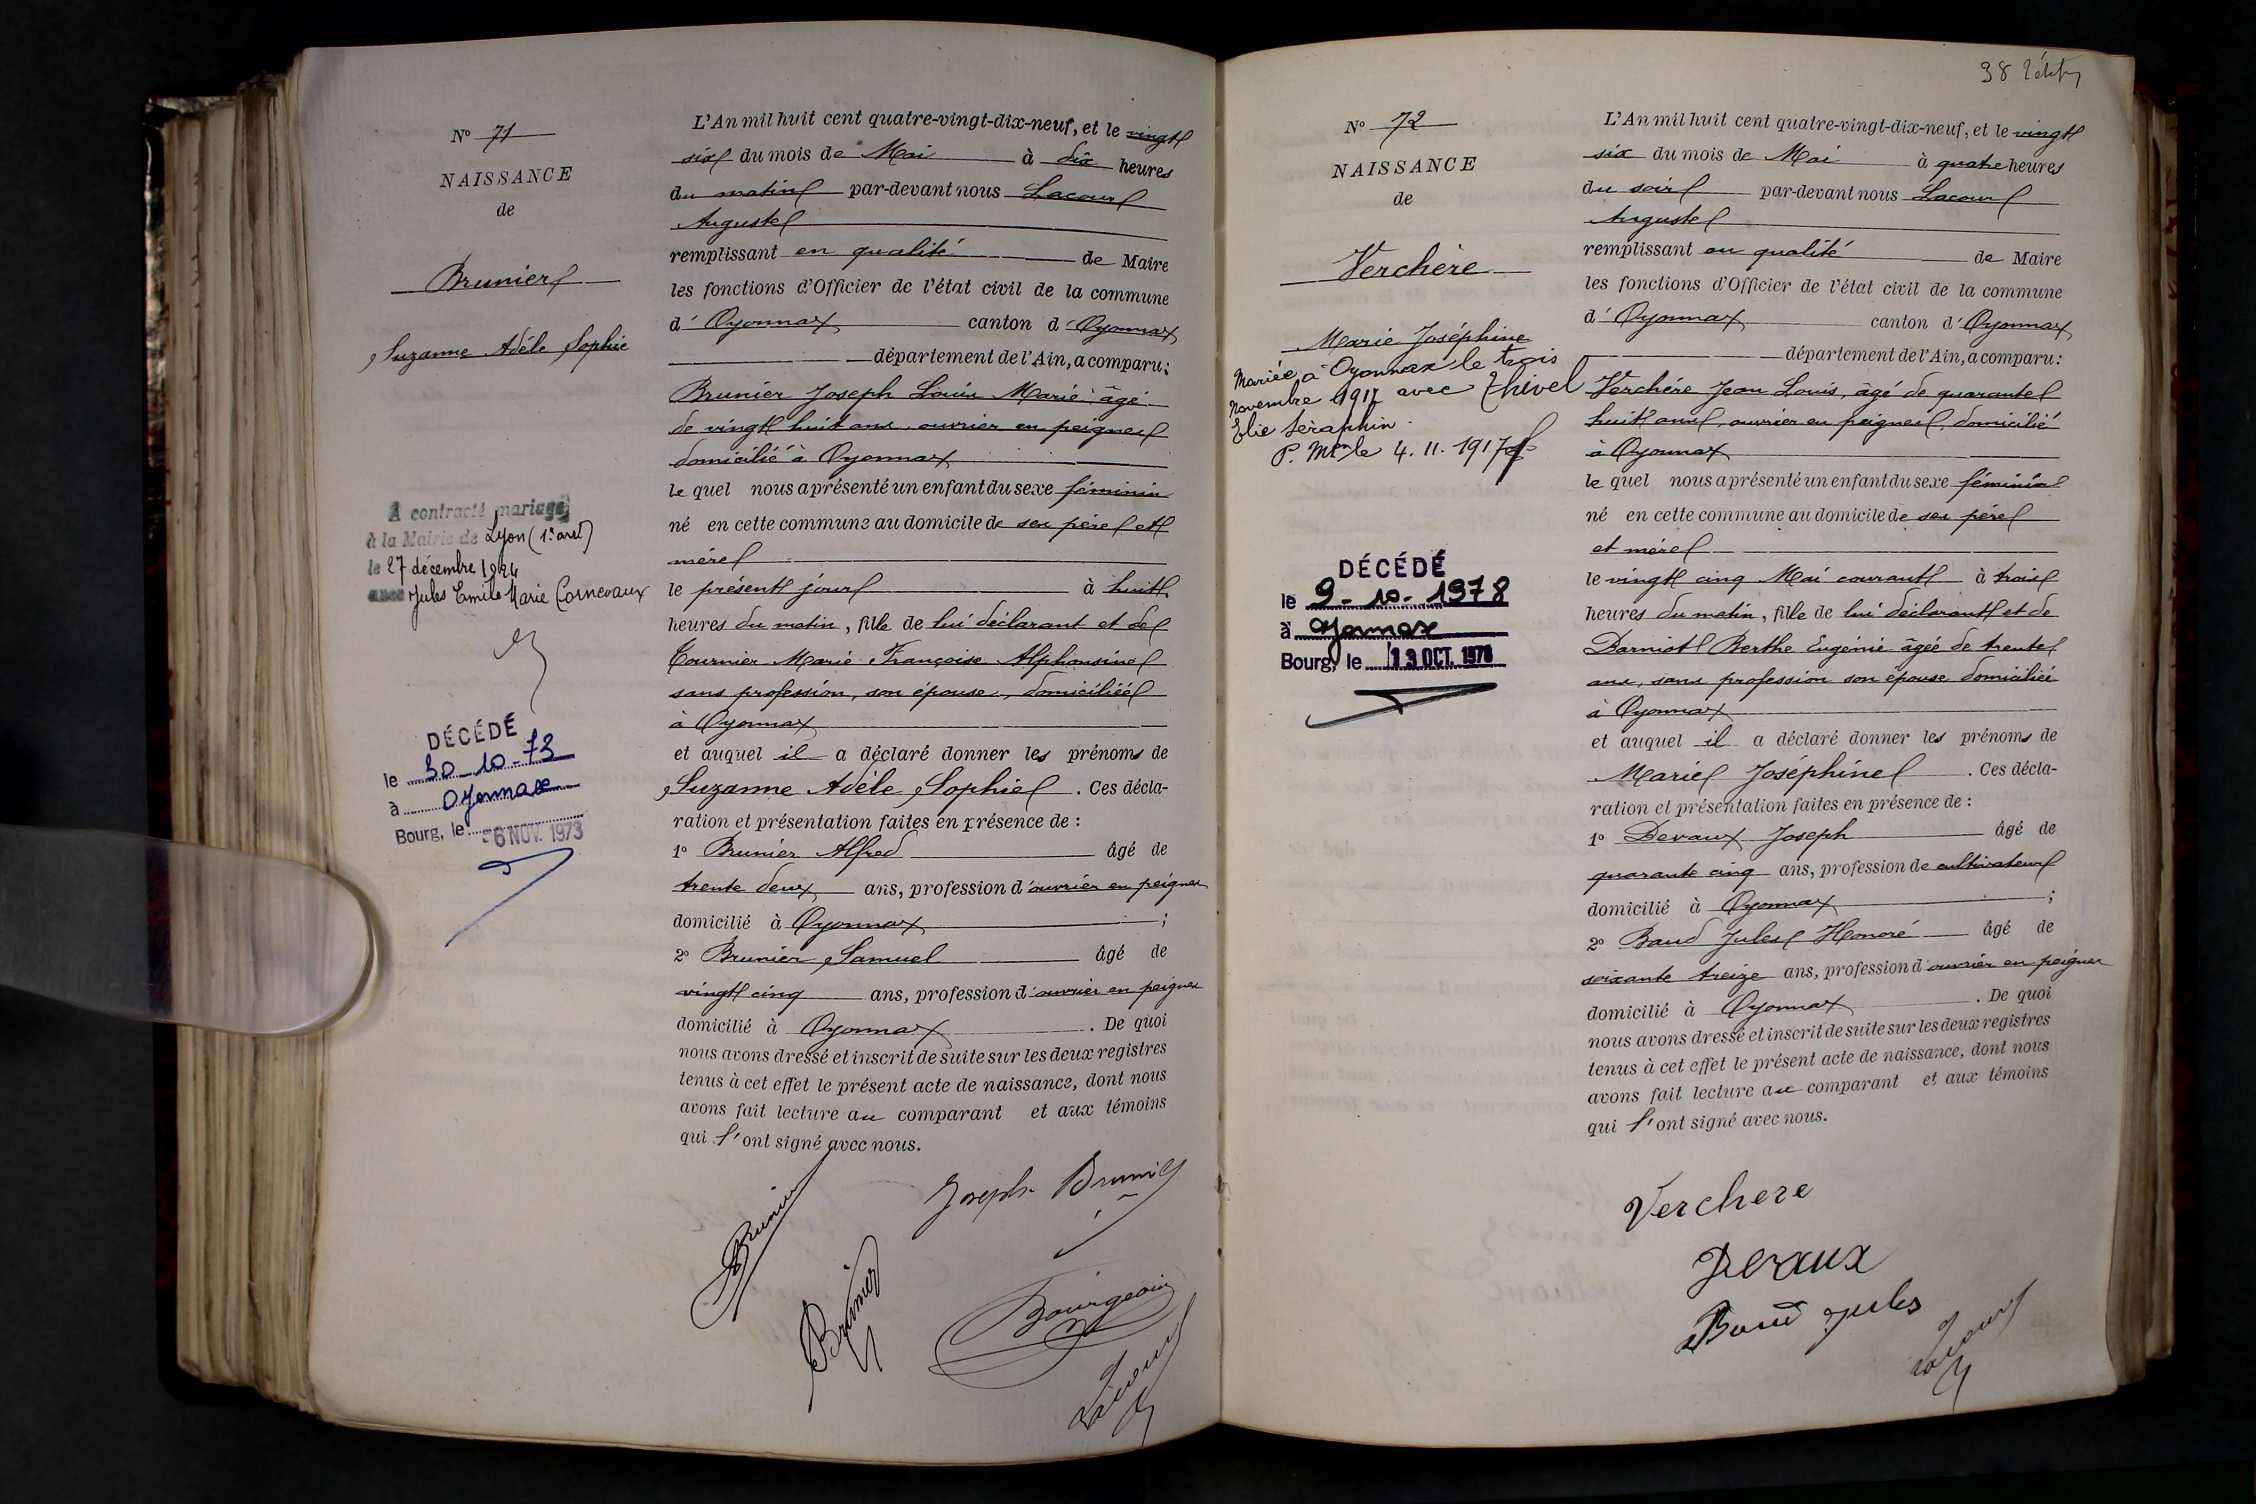 N° 71
NAISSANCE
de
Brunier
Suzanne Adèle Sophie
A contracté mariage
à la Mairie de Lyon (1er arrt)
le 27 décembre 1924
avec Jules Emile Marie Cornevaux
DÉCÉDÉ
le 30-10-73
à Oyonnax
Bourg, le -6 NOV. 1973
L'An mil huit cent quatre-vingt-dix-neuf, et le vingt
six du mois de Mai à dix heures
du matin par-devant nous Lacour
Auguste
remplissant en qualité de Maire
les fonctions d'Officier de l'état civil de la commune
d' Oyonnax canton d' Oyonnax
département de l'Ain, a comparu:
Brunier Joseph Louis Marie âgé
de vingt huit ans, ouvrier en peignes
domicilié à Oyonnax
le quel nous a présenté un enfant du sexe féminin
né en cette commune au domicile de ses père et
mère
le présent jour à huit
heures du matin, fille de lui déclarant et de
Tournier Marie Françoise Alphonsine
sans profession, son épouse, domiciliée
à Oyonnax
et auquel il a déclaré donner les prénoms de
Suzanne Adèle Sophie. Ces décla-
ration et présentation faites en présence de :
1° Brunier Alfred âgé de
trente deux ans, profession d'ouvrier en peignes
domicilié à Oyonnax ;
2° Brunier Samuel âgé de
vingt cinq ans, profession d'ouvrier en peignes
domicilié à Oyonnax. De quoi
nous avons dressé et inscrit de suite sur les deux registres
tenus à cet effet le présent acte de naissance, dont nous
avons fait lecture au comparant et aux témoins
qui l'ont signé avec nous.
Joseph Brunier
Brunier
Brunier
Bourgeois
Lacour
38
N° 72
NAISSANCE
de
Verchère
Marie Joséphine
Mariée à Oyonnax le trois
Novembre 1917 avec Thivel
Elie Séraphin.
P. Mon le 4.11.1917
DÉCÉDÉ
le 9-10-1978
à Oyonnax
Bourg, le 13 OCT. 1978
L'An mil huit cent quatre-vingt-dix-neuf, et le vingt
six du mois de Mai à quatre heures
du soir par-devant nous Lacour
Auguste
remplissant en qualité de Maire
les fonctions d'Officier de l'état civil de la commune
d' Oyonnax canton d' Oyonnax
département de l'Ain, a comparu:
Verchère Jean Louis, âgé de quarante
huit ans, ouvrier en peignes, domicilié
à Oyonnax
le quel nous a présenté un enfant du sexe féminin
né en cette commune au domicile de ses père
et mère
le vingt cinq Mai courant à trois
heures du matin, fille de lui déclarant et de
Darniot Berthe Eugénie âgée de trente
ans, sans profession son épouse domiciliée
à Oyonnax
et auquel il a déclaré donner les prénoms de
Marie Joséphine. Ces décla-
ration et présentation faites en présence de :
1° Devaux Joseph âgé de
quarante cinq ans, profession de cultivateur
domicilié à Oyonnax ;
2° Baud Jules Honoré âgé de
soixante treize ans, profession d'ouvrier en peignes
domicilié à Oyonnax. De quoi
nous avons dressé et inscrit de suite sur les deux registres
tenus à cet effet le présent acte de naissance, dont nous
avons fait lecture au comparant et aux témoins
qui l'ont signé avec nous.
Verchere
Devaux
Baud Jules
Lacour